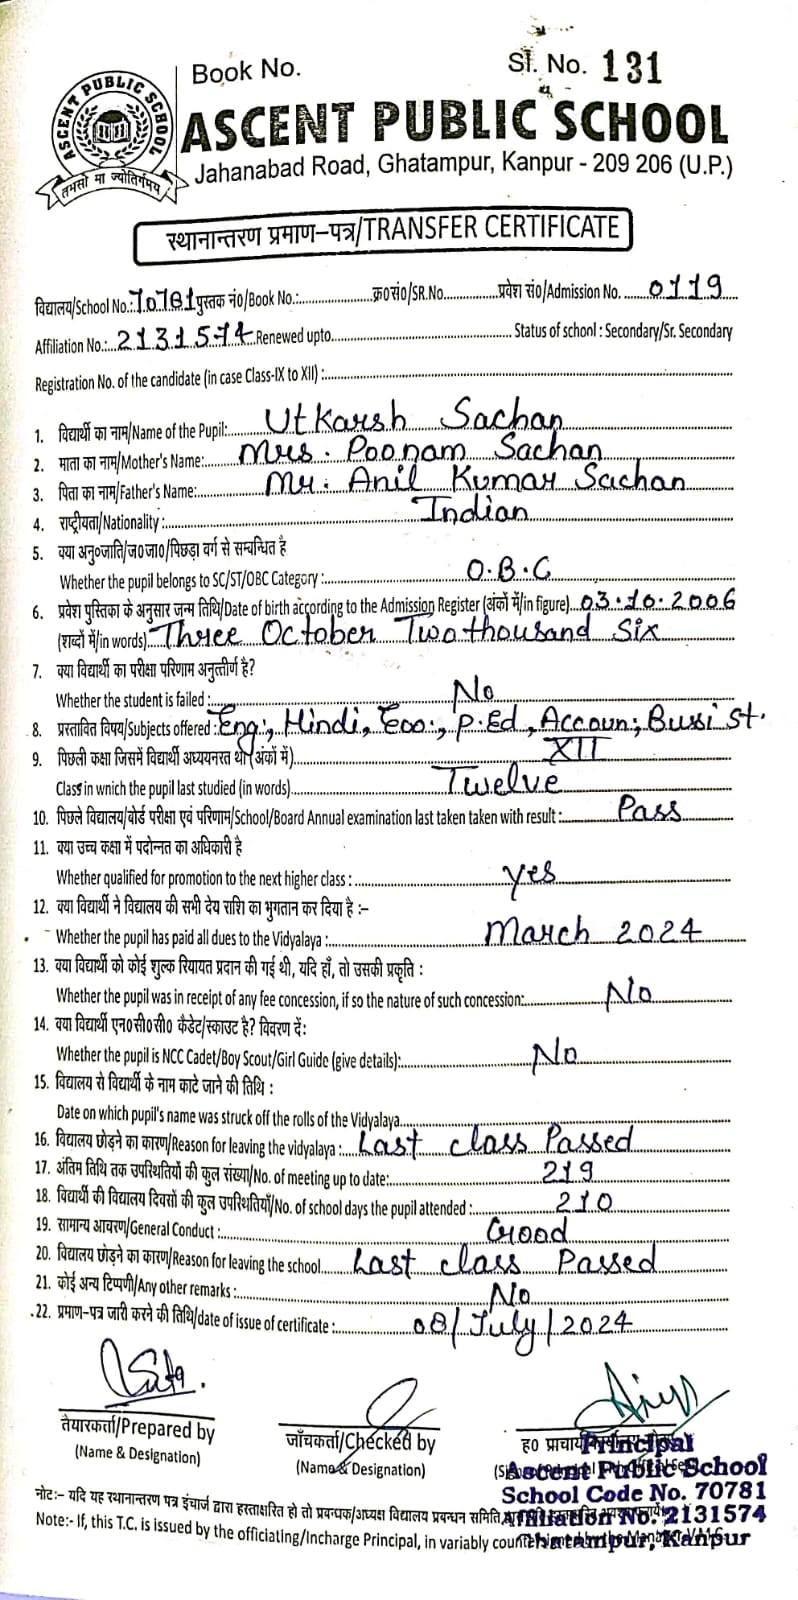 Book No.
Sl. No. 131
ASCENT PUBLIC SCHOOL
तमसो मा ज्योतिर्गमय
ASCENT PUBLIC SCHOOL
Jahanabad Road, Ghatampur, Kanpur - 209 206 (U.P.)
स्थानान्तरण प्रमाण-पत्र/TRANSFER CERTIFICATE
विद्यालय/School No.: 70781 पुस्तक नं०/Book No.: क्र०सं०/SR.No. प्रवेश सं०/Admission No. 0119
Affiliation No.: 2131574 Renewed upto Status of school : Secondary/Sr. Secondary
Registration No. of the candidate (in case Class-IX to XII) :
1. विद्यार्थी का नाम/Name of the Pupil: Utkarsh Sachan
2. माता का नाम/Mother's Name: Mrs. Poonam Sachan
3. पिता का नाम/Father's Name: Mr. Anil Kumar Sachan
4. राष्ट्रीयता/Nationality : Indian
5. क्या अनु०जाति/ज०जा०/पिछड़ा वर्ग से सम्बन्धित है
Whether the pupil belongs to SC/ST/OBC Category : O.B.C
6. प्रवेश पुस्तिका के अनुसार जन्म तिथि/Date of birth according to the Admission Register (अंकों में/in figure) 03.10.2006
(शब्दों में/in words) Three October Two thousand Six
7. क्या विद्यार्थी का परीक्षा परिणाम अनुत्तीर्ण है?
Whether the student is failed : No
8. प्रस्तावित विषय/Subjects offered : Eng:, Hindi, Eco:, P.Ed, Accoun; Busi St.
9. पिछली कक्षा जिसमें विद्यार्थी अध्ययनरत था (अंकों में) XII
Class in wnich the pupil last studied (in words) Twelve
10. पिछले विद्यालय/बोर्ड परीक्षा एवं परिणाम/School/Board Annual examination last taken taken with result : Pass
11. क्या उच्च कक्षा में पदोन्नत का अधिकारी है
Whether qualified for promotion to the next higher class : Yes
12. क्या विद्यार्थी ने विद्यालय की सभी देय राशि का भुगतान कर दिया है :-
Whether the pupil has paid all dues to the Vidyalaya : March 2024
13. क्या विद्यार्थी को कोई शुल्क रियायत प्रदान की गई थी, यदि हाँ, तो उसकी प्रकृति :
Whether the pupil was in receipt of any fee concession, if so the nature of such concession: No
14. क्या विद्यार्थी एन०सी०सी० कैडेट/स्काउट है? विवरण दें:
Whether the pupil is NCC Cadet/Boy Scout/Girl Guide (give details): No
15. विद्यालय से विद्यार्थी के नाम काटे जाने की तिथि :
Date on which pupil's name was struck off the rolls of the Vidyalaya
16. विद्यालय छोड़ने का कारण/Reason for leaving the vidyalaya : Last class Passed
17. अंतिम तिथि तक उपस्थितियों की कुल संख्या/No. of meeting up to date: 219
18. विद्यार्थी की विद्यालय दिवसों की कुल उपस्थितियाँ/No. of school days the pupil attended : 210
19. सामान्य आचरण/General Conduct : Good
20. विद्यालय छोड़ने का कारण/Reason for leaving the school Last class Passed
21. कोई अन्य टिप्पणी/Any other remarks : No
22. प्रमाण-पत्र जारी करने की तिथि/date of issue of certificate : 08/July/2024
तैयारकर्ता/Prepared by
(Name & Designation)
जाँचकर्ता/Checked by
(Name & Designation)
ह० प्राचार्य
Principal
Ascent Public School
School Code No. 70781
Affiliation No. 2131574
Ghatampur, Kanpur
नोट:- यदि यह स्थानान्तरण पत्र इंचार्ज द्वारा हस्ताक्षरित हो तो प्रबन्धक/अध्यक्ष विद्यालय प्रबन्धन समिति
Note:- If, this T.C. is issued by the officiating/Incharge Principal, in variably